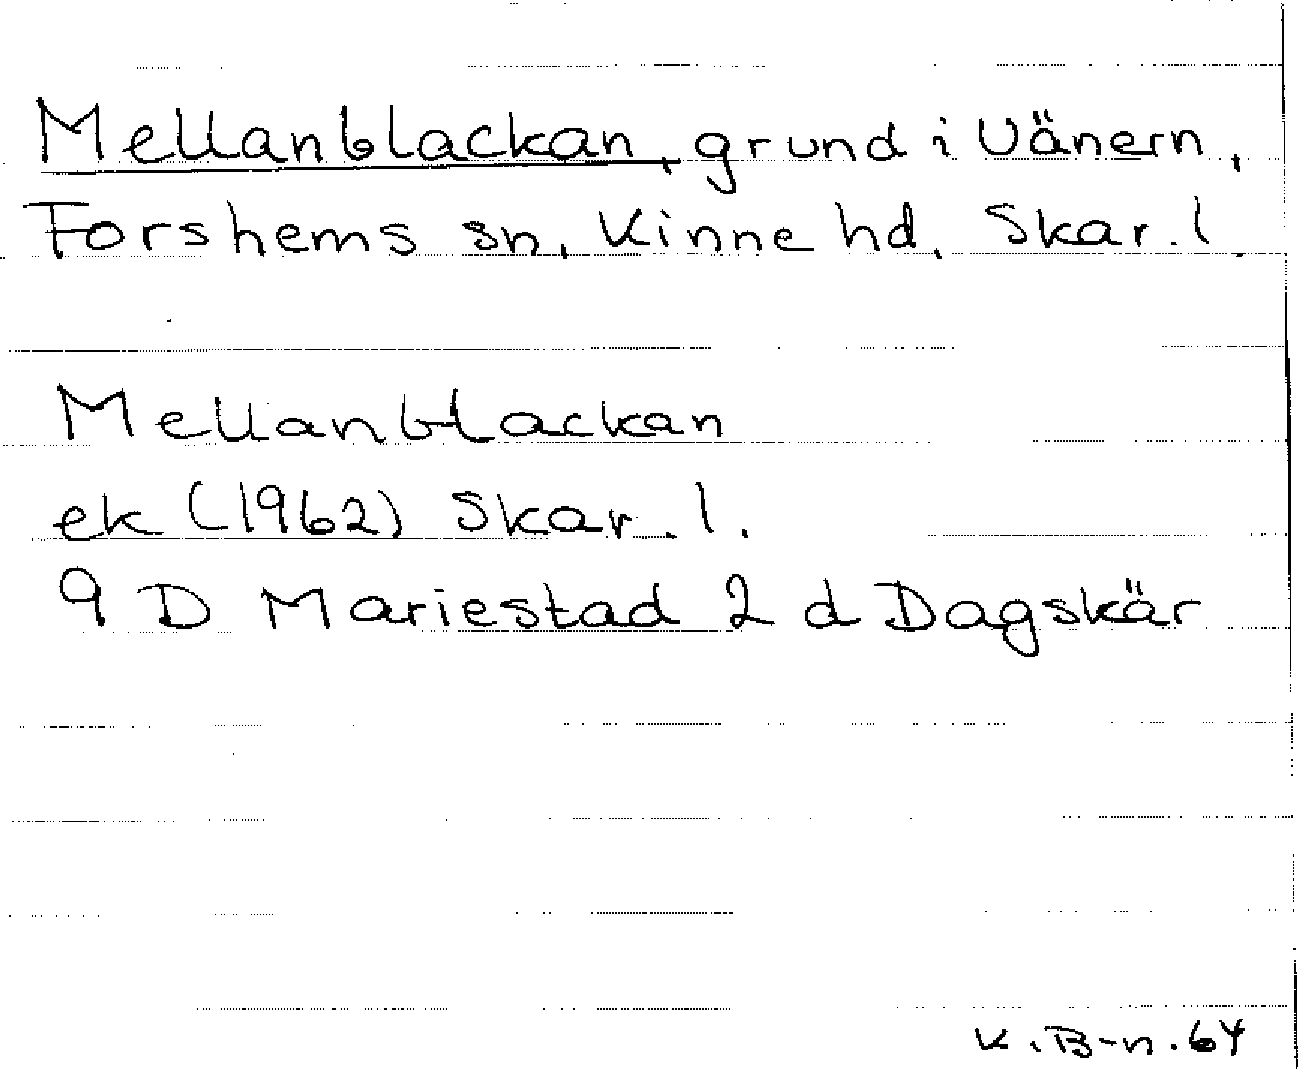 Mellanblackan, grund i Vänern,
Forshems sn, Kinne hd, Skar. l.
Mellanblackan
ek (1962) Skar. l.
9 D Mariestad 2 d Dagskär
K. B-n. 64